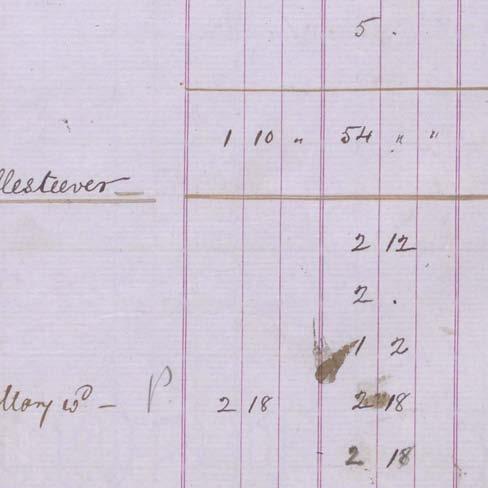 5 .
1 10 " 54 " "
llesteever
2 12
2 .
1 2
Mary wd — P. 2 18 2 18
2 18